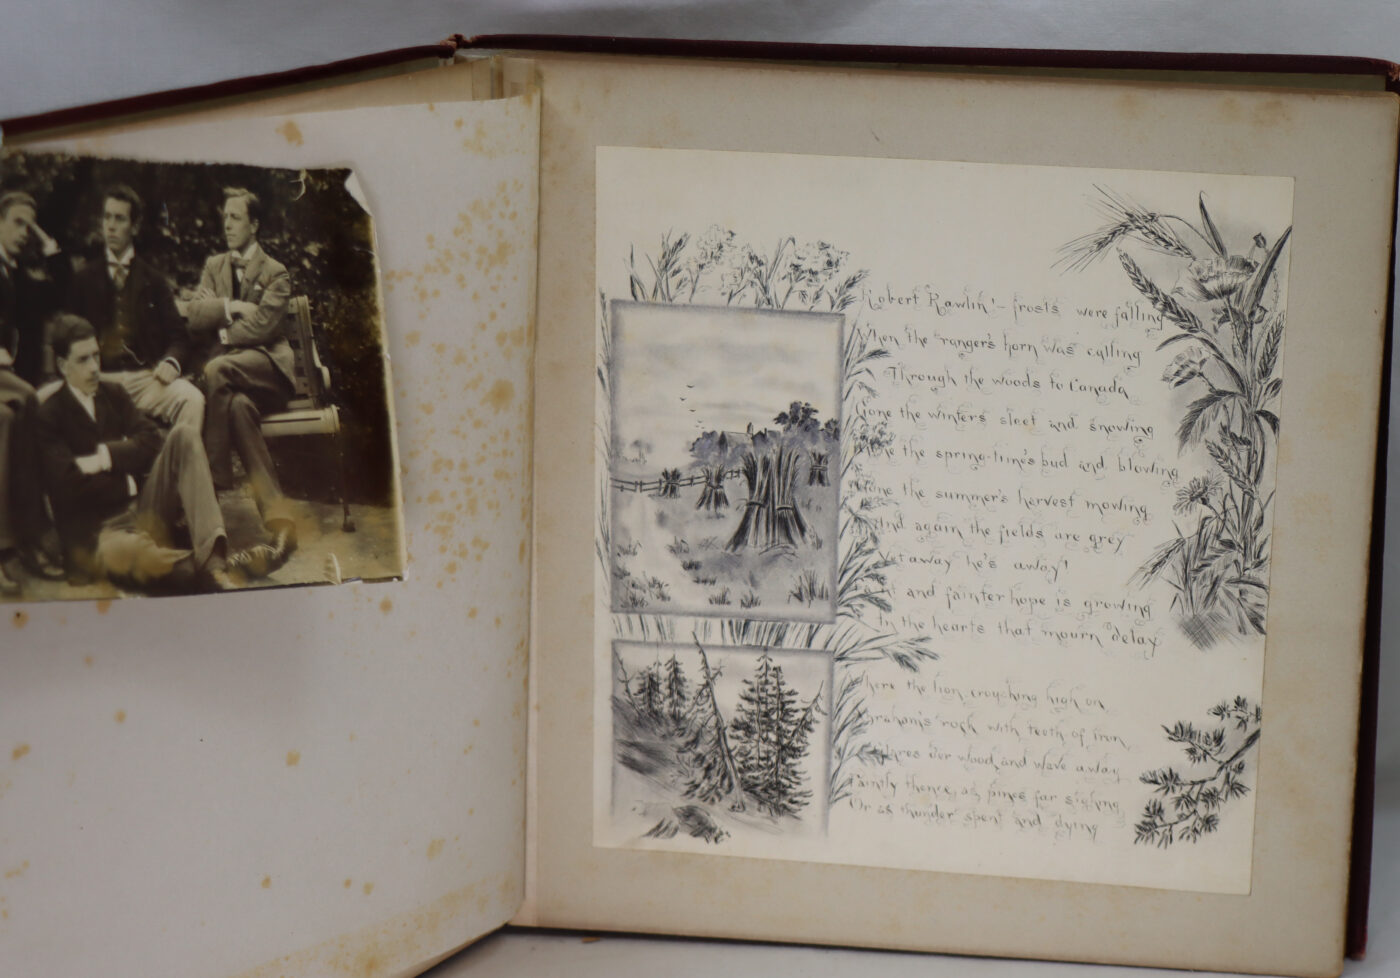 Robert Rawlin! – frosts were falling
When the ranger's horn was calling
Through the woods to Canada
Gone the winter's sleet and snowing
Gone the spring-time's bud and blowing
Gone the summer's harvest mowing
And again the fields are grey
Yet away he's away!
and fainter hope is growing
In the hearts that mourn delay
Where the lion crouching high on
Abraham's rock with teeth of iron
Glares o'er wood and wave away
Faintly thence, as pines far sighing
Or as thunder spent and dying